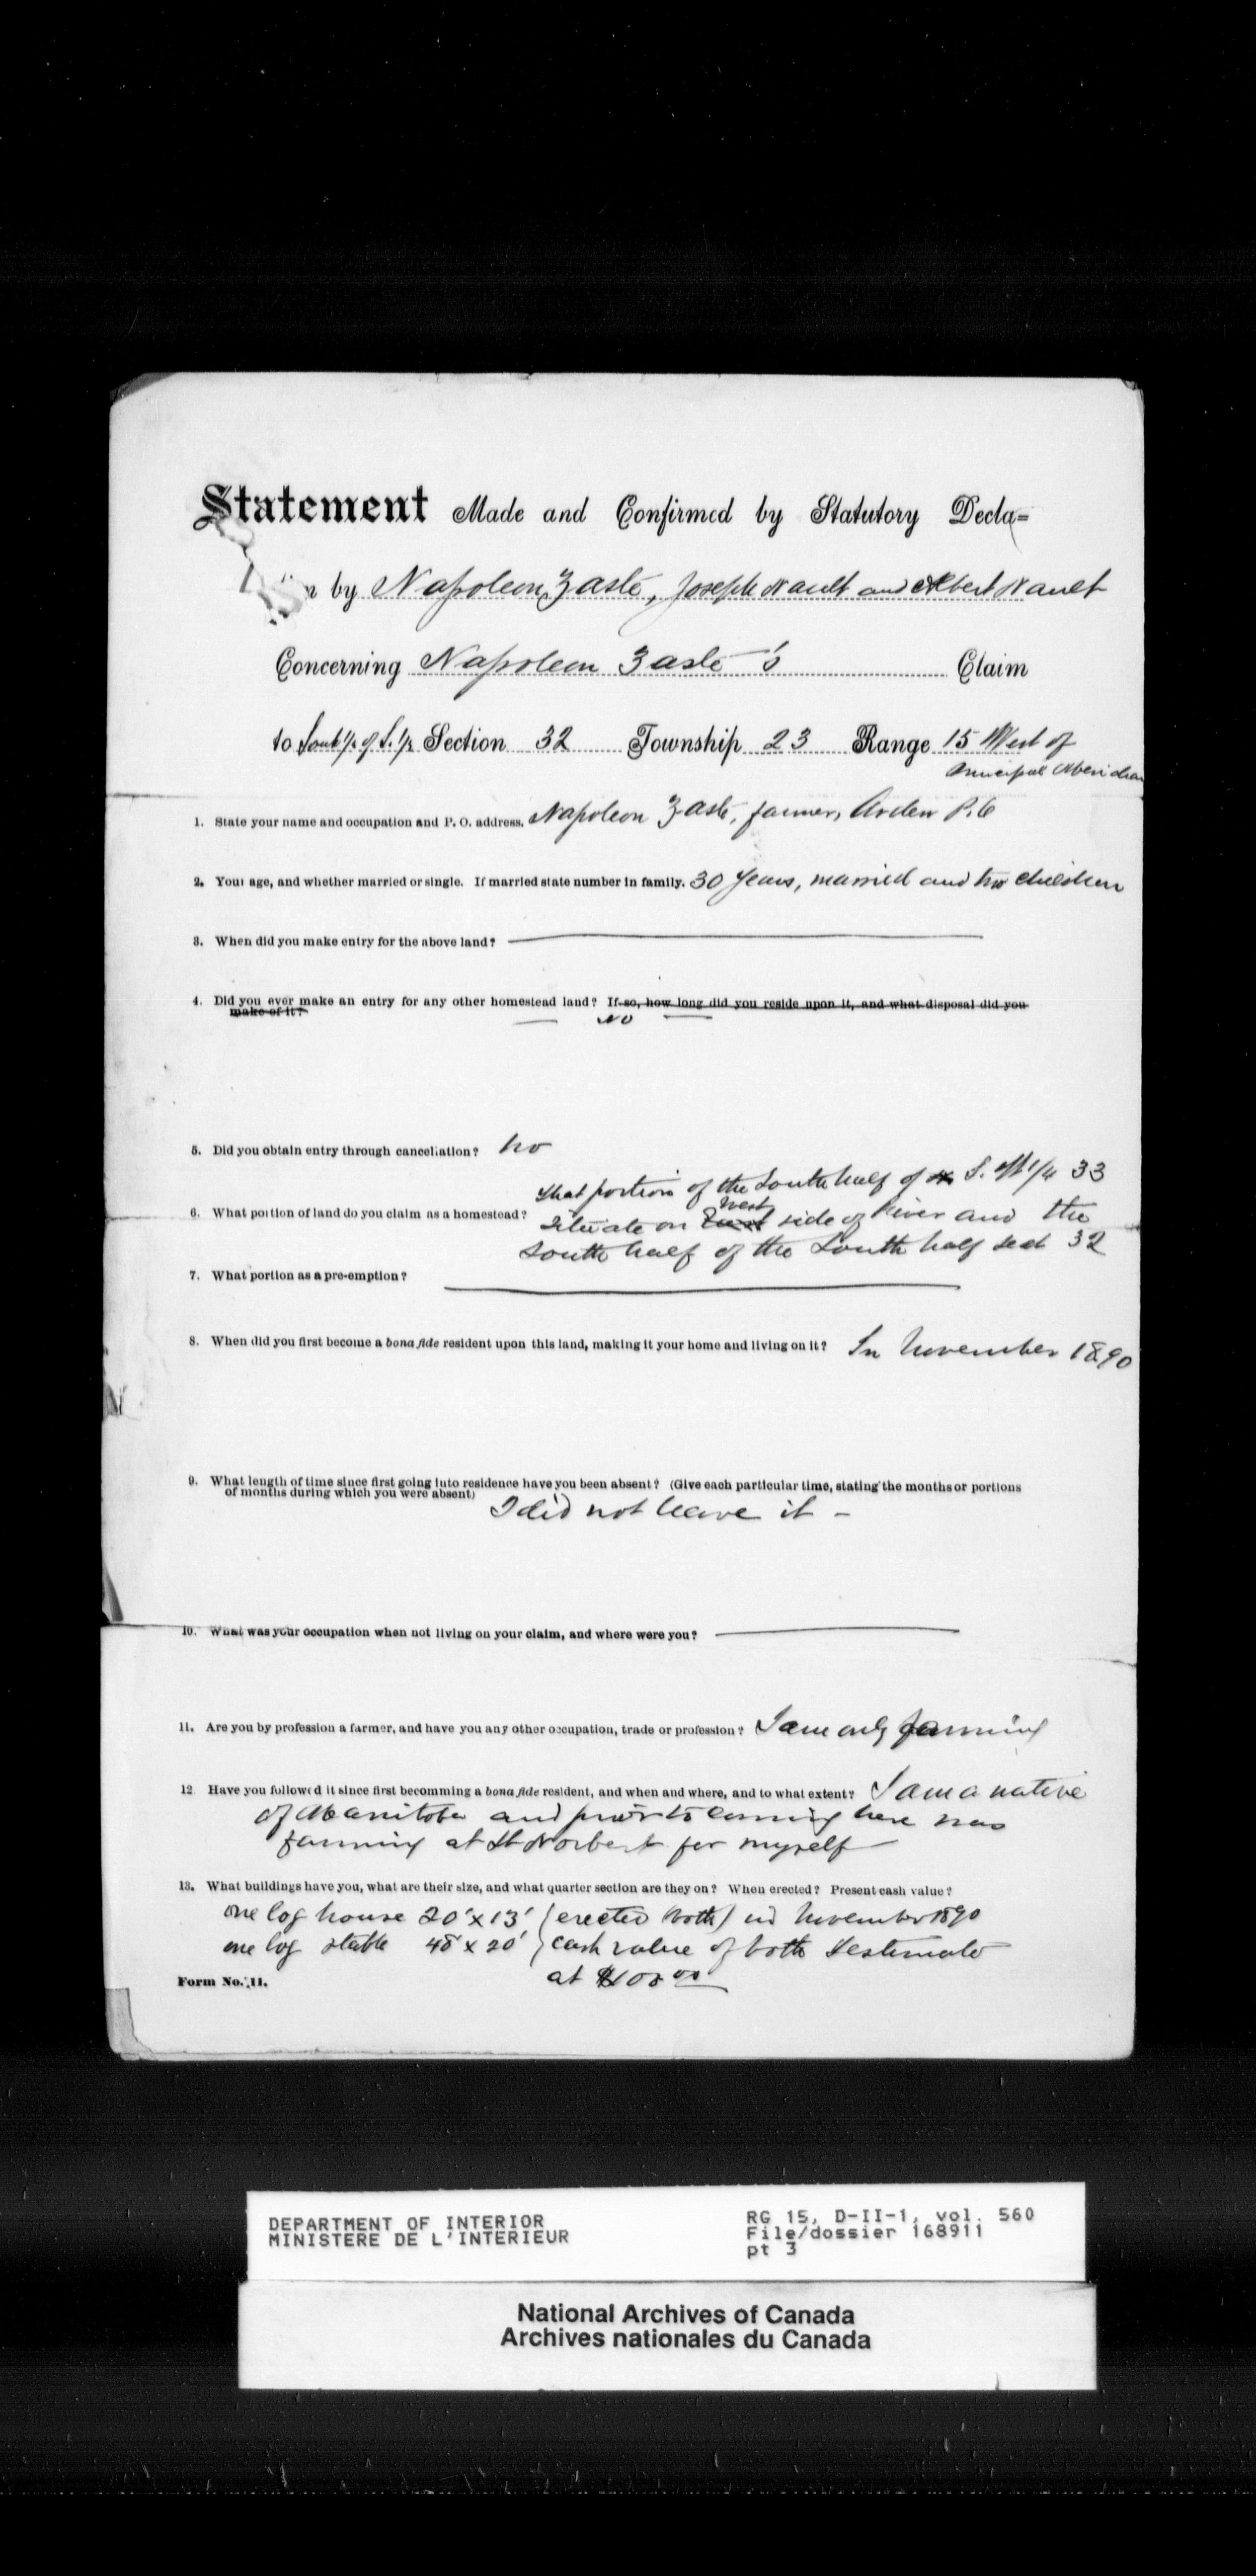 Statement Made and Confirmed by Statutory Decla=
n by Napoleon Zasté, Joseph Nault and Albert Nault
Concerning Napoleon Zasté's Claim
to South 1/2 of S. 1/2 Section 32 Township 23 Range 15 West of
Principal Meridian
1. State your name and occupation and P. O. address. Napoleon Zasté, farmer, Arden P.O
2. Your age, and whether married or single. If married state number in family. 30 years, married and two children
3. When did you make entry for the above land?
4. Did you ever make an entry for any other homestead land? If so, how long did you reside upon it, and what disposal did you
make of it?
No
5. Did you obtain entry through cancellation? no
that portion of the South half of S. W 1/4 33
6. What portion of land do you claim as a homestead? Situate on west side of River and the
South half of the South half Sect 32
7. What portion as a pre-emption?
8. When did you first become a bona fide resident upon this land, making it your home and living on it? In November 1890
9. What length of time since first going into residence have you been absent? (Give each particular time, stating the months or portions
of months during which you were absent)
I did not leave it -
10. What was your occupation when not living on your claim, and where were you?
11. Are you by profession a farmer, and have you any other occupation, trade or profession? I am only farming
12 Have you followed it since first becomming a bona fide resident, and when and where, and to what extent? I am a native
of Manitoba and prior to coming here was
farming at St Norbert for myself
13. What buildings have you, what are their size, and what quarter section are they on? When erected? Present cash value?
one log house 20' x 13' (erected both) in November 1890
one log stable 48 x 20' cash value of both I estimate
at $100 00
Form No. 11.
DEPARTMENT OF INTERIOR
MINISTERE DE L'INTERIEUR
RG 15, D-II-1, vol. 560
File/dossier 168911
pt 3
National Archives of Canada
Archives nationales du Canada